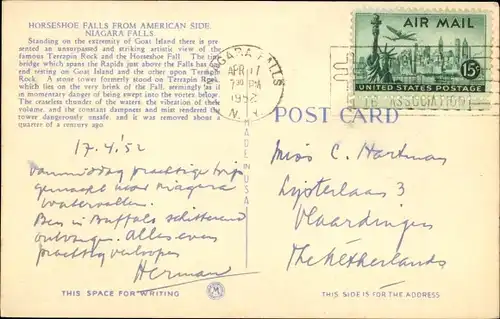 HORSESHOE FALLS FROM AMERICAN SIDE,
NIAGARA FALLS.
Standing on the extremity of Goat Island there is pre-
sented an unsurpassed and striking artistic view of the
famous Terrapin Rock and the Horseshoe Fall. The
bridge which spans the Rapids just above the Falls has
end resting on Goat Island and the other upon Terrapin
Rock. A stone tower formerly stood on Terrapin Rock,
which lies on the very brink of the Fall, seemingly as if
in momentary danger of being swept into the vortex below.
The ceaseless thunder of the waters, the vibration of their
volume, and the constant dampness and mist rendered the
tower dangerously unsafe, and it was removed about a
quarter of a century ago.
NIAGARA FALLS
APR 17
7 30 PM
1952
N. Y.
AIR MAIL
15¢
UNITED STATES POSTAGE
ASSOCIATION
MADE IN U.S.A.
POST CARD
17.4.'52
Vanmiddag prachtige trip
gemaakt naar Niagara
watervallen.
Ben in Buffalo schitterend
ontvangen. Alles even
prachtig verlopen
Herman
Miss C. Hartman
Lijsterlaan 3
Vlaardingen
The Netherlands
THIS SPACE FOR WRITING
THIS SIDE IS FOR THE ADDRESS